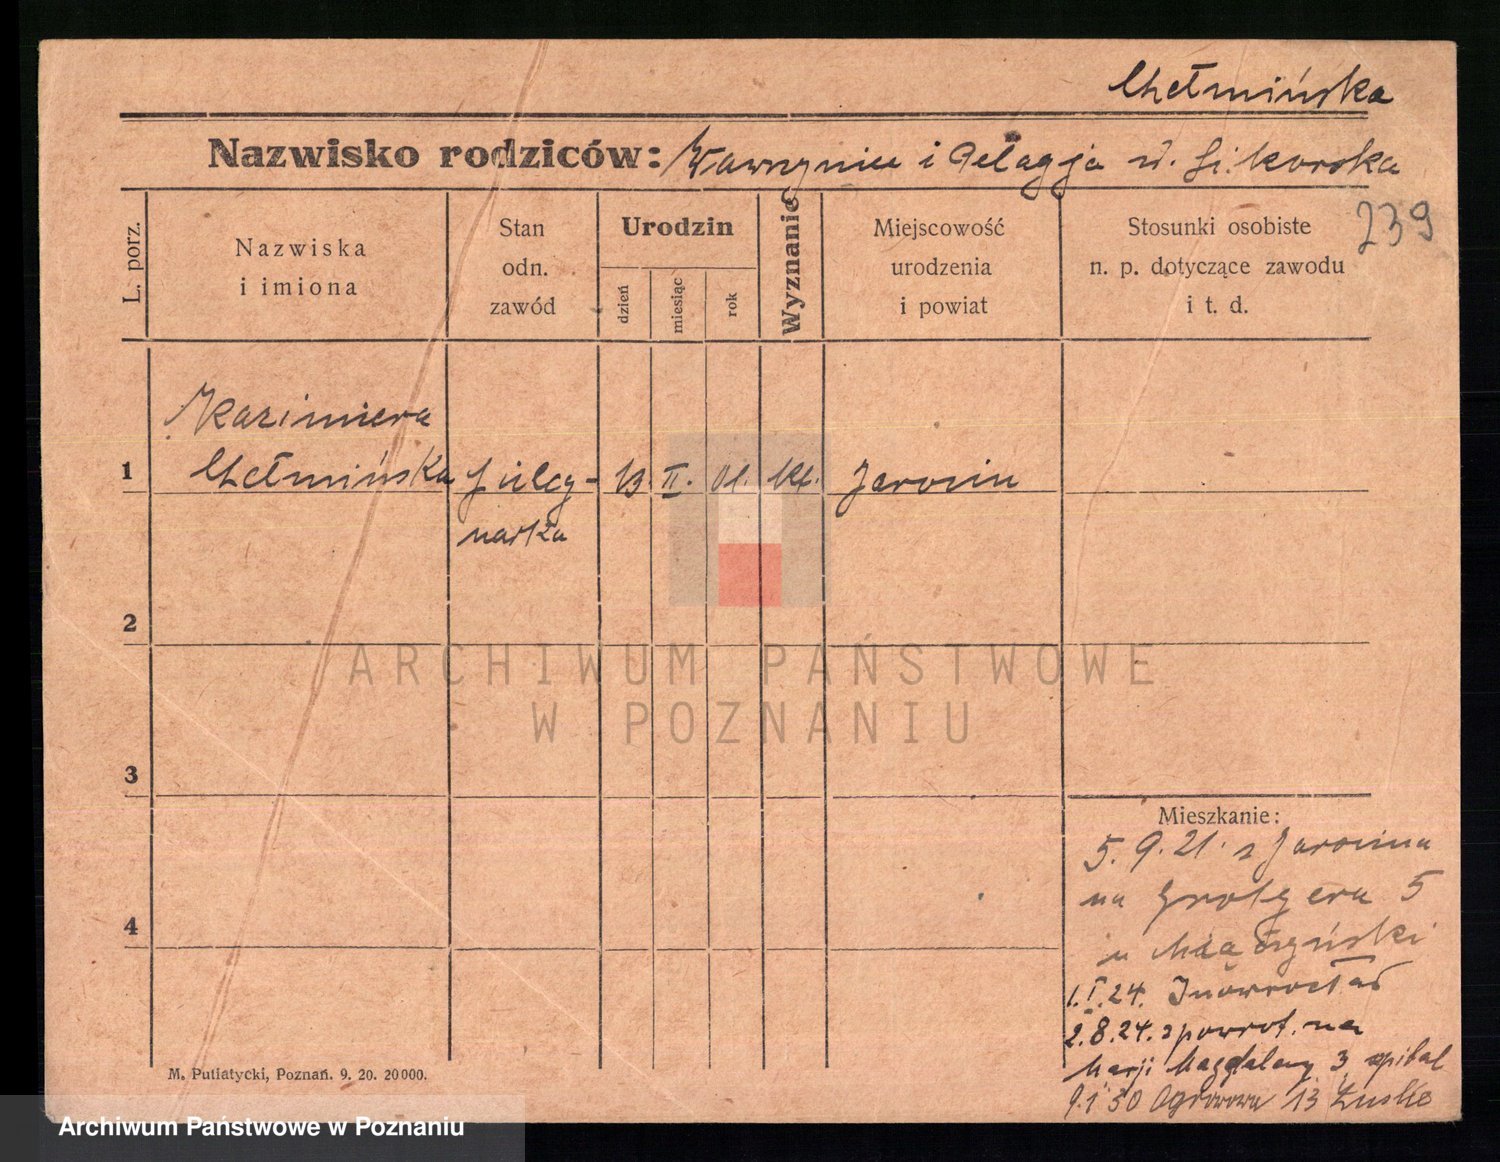 Chełmińska
Nazwisko rodziców: Wawrzyniec i Pelagja z d. Sikorska
239
L. porz.
Nazwiska
i imiona
Stan
odn.
zawód
Urodzin
dzień
miesiąc
rok
Wyznanie
Miejscowość
urodzenia
i powiat
Stosunki osobiste
n. p. dotyczące zawodu
i t. d.
Kazimiera
1 Chełmińska pielęg- 13 II. 01. kt. Jarocin
niarka
2
ARCHIWUM PAŃSTWOWE
W POZNANIU
3
Mieszkanie:
5. 9. 21. z Jarocina
na Grotgera 5
u
4
1. I. 24. Inowrocław
2. 8. 24. z powrot. na
Marji Magdaleny 3 szpital
9. 1 30 Ogrodowa 13
M. Putiatycki, Poznań. 9. 20. 20000.
Archiwum Państwowe w Poznaniu